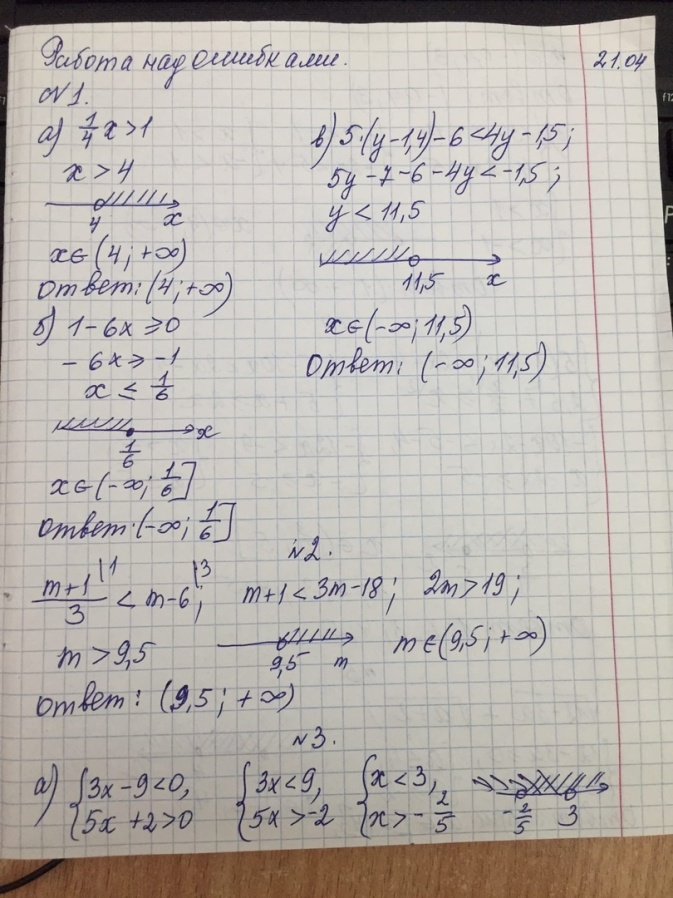 Работа над ошибками. 21.04
№1.
а) 1/4 x > 1
x > 4
4 x
x ∈ (4; +∞)
ответ: (4; +∞)
б) 1 - 6x ≥ 0
- 6x ≥ -1
x ≤ 1/6
1/6 x
x ∈ (-∞; 1/6]
ответ: (-∞; 1/6]
в) 5·(y - 1,4) - 6 < 4y - 1,5;
5y - 7 - 6 - 4y < -1,5;
y < 11,5
11,5 x
x ∈ (-∞; 11,5)
Ответ: (-∞; 11,5)
№2.
(m+1)/3 |1 < m - 6 |3; m + 1 < 3m - 18; 2m > 19;
m > 9,5 9,5 m m ∈ (9,5; +∞)
ответ: (9,5; +∞)
№3.
а) { 3x - 9 < 0, { 3x < 9, { x < 3,
{ 5x + 2 > 0 { 5x > -2 { x > - 2/5 - 2/5 3